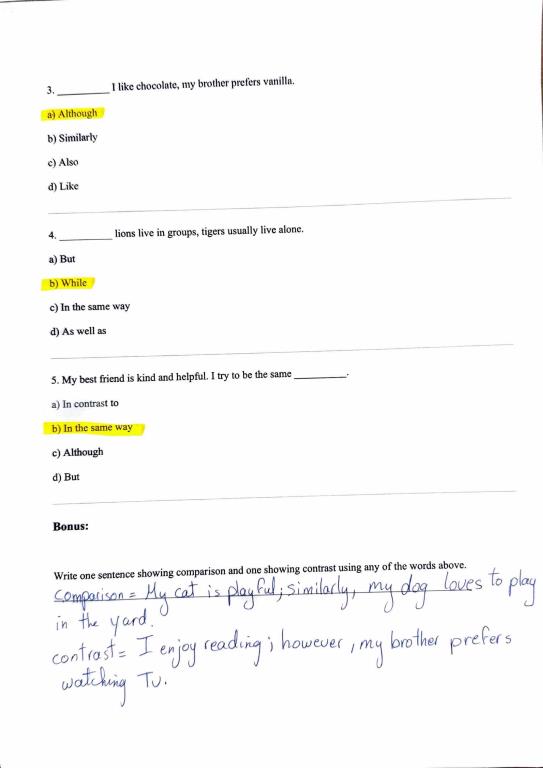 3. __________ I like chocolate, my brother prefers vanilla.
a) Although
b) Similarly
c) Also
d) Like
4. __________ lions live in groups, tigers usually live alone.
a) But
b) While
c) In the same way
d) As well as
5. My best friend is kind and helpful. I try to be the same __________.
a) In contrast to
b) In the same way
c) Although
d) But
Bonus:
Write one sentence showing comparison and one showing contrast using any of the words above.
Comparison = My cat is playful; similarly, my dog loves to play
in the yard.
contrast = I enjoy reading; however, my brother prefers
watching TV.